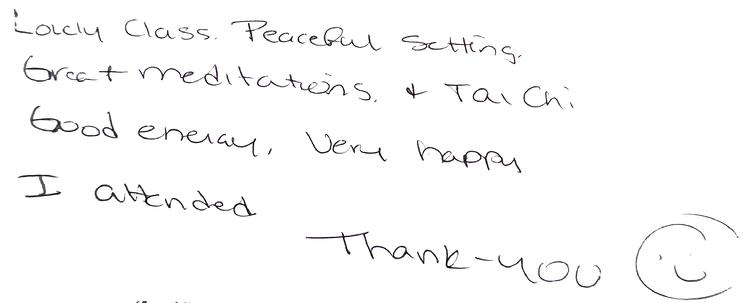 Lovely Class. Peaceful Setting.
Great meditations. & Tai Chi
Good energy, Very happy
I attended
Thank-you